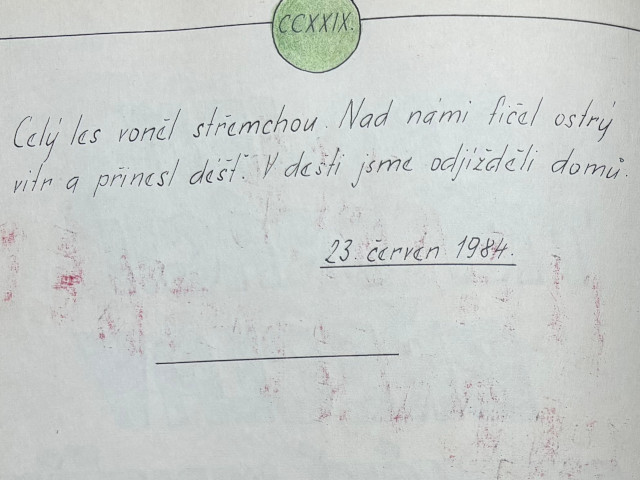 CCXXIX.
Celý les voněl střemchou. Nad námi fičel ostrý
vítr a přinesl déšť. V dešti jsme odjížděli domů.
23. červen 1984.